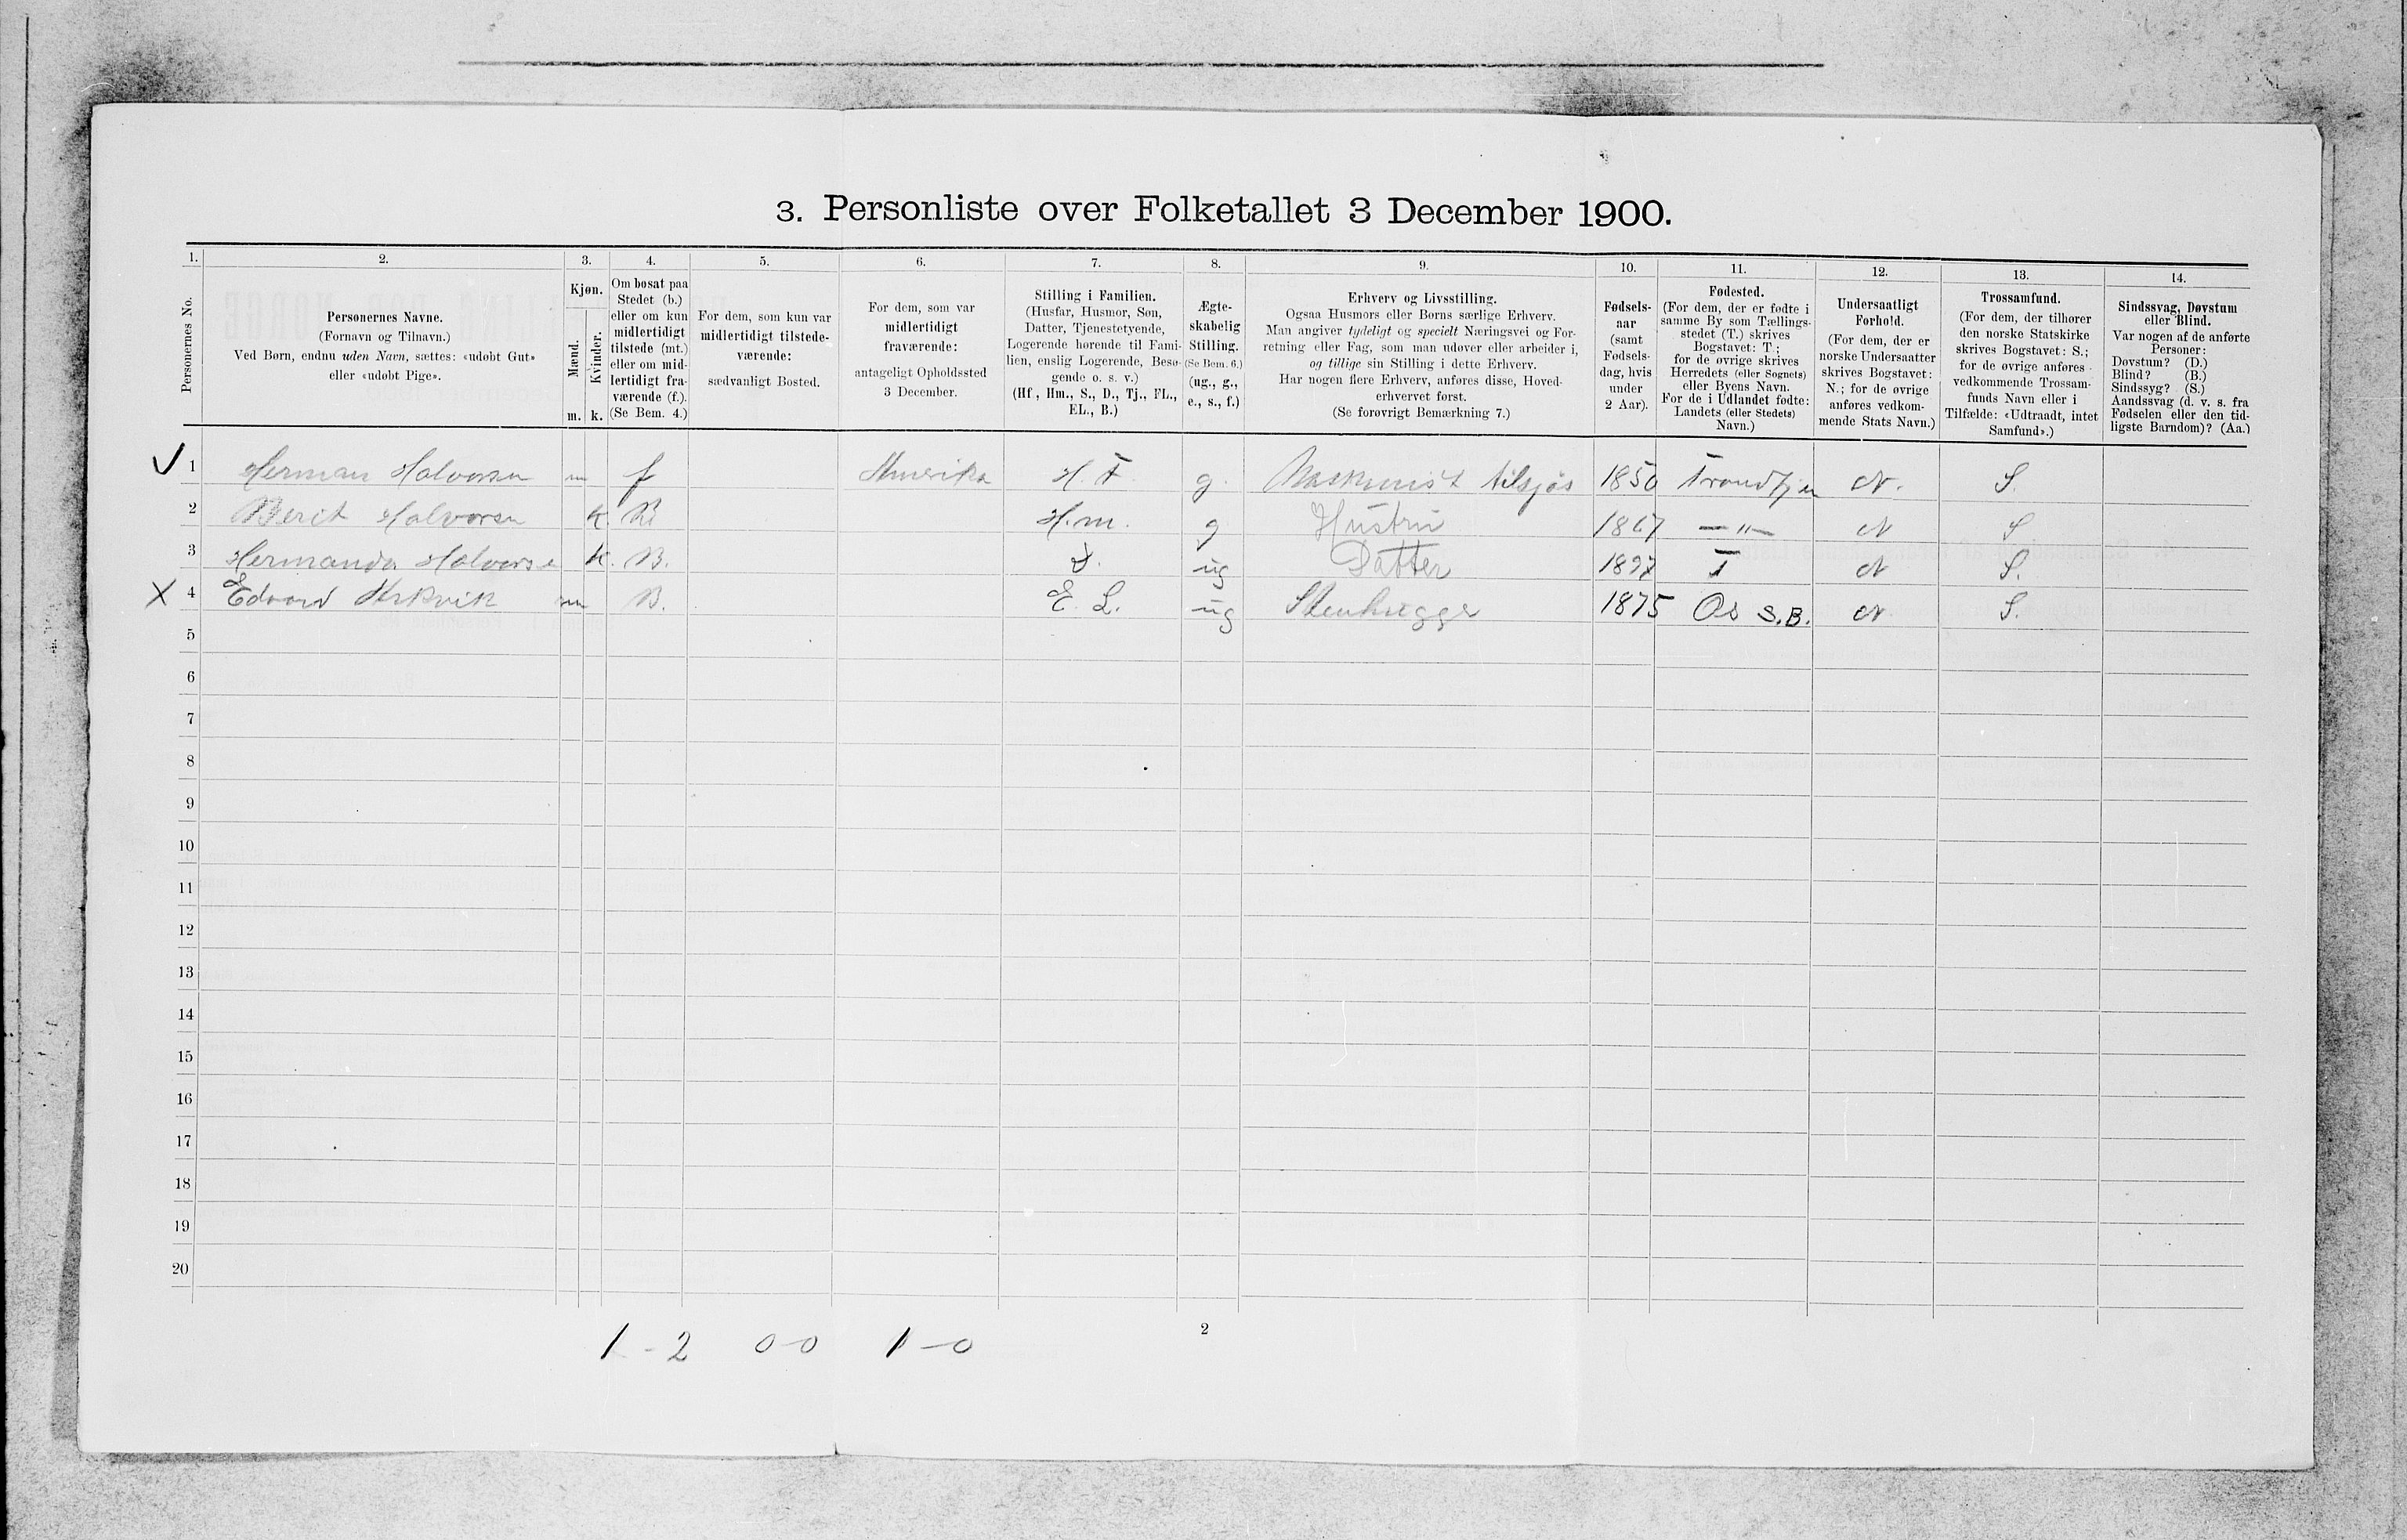 3. Personliste over Folketallet 3 December 1900.
1. 2. 3. 4. 5. 6. 7. 8. 9. 10. 11. 12. 13. 14.
Personernes No.
Personernes Navne.
(Fornavn og Tilnavn.)
Ved Børn, endnu uden Navn, sættes: «udøbt Gut»
eller «udøbt Pige».
Kjøn.
Mænd.
m.
Kvinder.
k.
Om bosat paa
Stedet (b.)
eller om kun
midlertidigt
tilstede (mt.)
eller om mid-
lertidigt fra-
værende (f.).
(Se Bem. 4.)
For dem, som kun var
midlertidigt tilstede-
værende:
sædvanligt Bosted.
For dem, som var
midlertidigt
fraværende:
antageligt Opholdssted
3 December.
Stilling i Familien.
(Husfar, Husmor, Søn,
Datter, Tjenestetyende,
Logerende hørende til Fami-
lien, enslig Logerende, Besø-
gende o. s. v.)
(Hf., Hm., S., D., Tj., FL.,
EL., B.)
Ægte-
skabelig
Stilling.
(Se Bem. 6.)
(ug., g.,
e., s., f.)
Erhverv og Livsstilling.
Ogsaa Husmors eller Børns særlige Erhverv.
Man angiver tydeligt og specielt Næringsvei og For-
retning eller Fag, som man udøver eller arbeider i,
og tillige sin Stilling i dette Erhverv.
Har nogen flere Erhverv, anføres disse, Hoved-
erhvervet først.
(Se forøvrigt Bemærkning 7.)
Fødsels-
aar
(samt
Fødsels-
dag, hvis
under
2 Aar).
Fødested.
(For dem, der er fødte i
samme By som Tællings-
stedet (T.) skrives
Bogstavet: T.;
for de øvrige skrives
Herredets (eller Sognets)
eller Byens Navn.
For de i Udlandet fødte:
Landets (eller Stedets)
Navn.)
Undersaatligt
Forhold.
(For dem, der er
norske Undersaatter
skrives Bogstavet:
N.; for de øvrige
anføres vedkom-
mende Stats Navn.)
Trossamfund.
(For dem, der tilhører
den norske Statskirke
skrives Bogstavet: S.;
for de øvrige anføres
vedkommende Trossam-
funds Navn eller i
Tilfælde: «Udtraadt, intet
Samfund».)
Sindssvag, Døvstum
eller Blind.
Var nogen af de anførte
Personer:
Døvstum? (D.)
Blind? (B.)
Sindssyg? (S.)
Aandssvag (d. v. s. fra
Fødselen eller den tid-
ligste Barndom)? (Aa.)
1 Herman Halvorsen m f Amerika H. F. g. Maskinist tilsjøs 1850 Trondhjem N. S.
2 Berit Halvorsen k. B. H.m. g Hustru 1867 —"— N S
3 Hermanda Halvorse k. B. D. ug Datter 1897 T N S.
X 4 Edvard m B. E. L. ug Stenhugger 1875 Os S.B. N S.
5
6
7
8
9
10
11
12
13
14
15
16
17
18
19
20
1 - 2 0-0 1-0
2